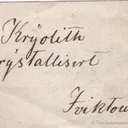 Kryolith
rystallisirt
Iviktou